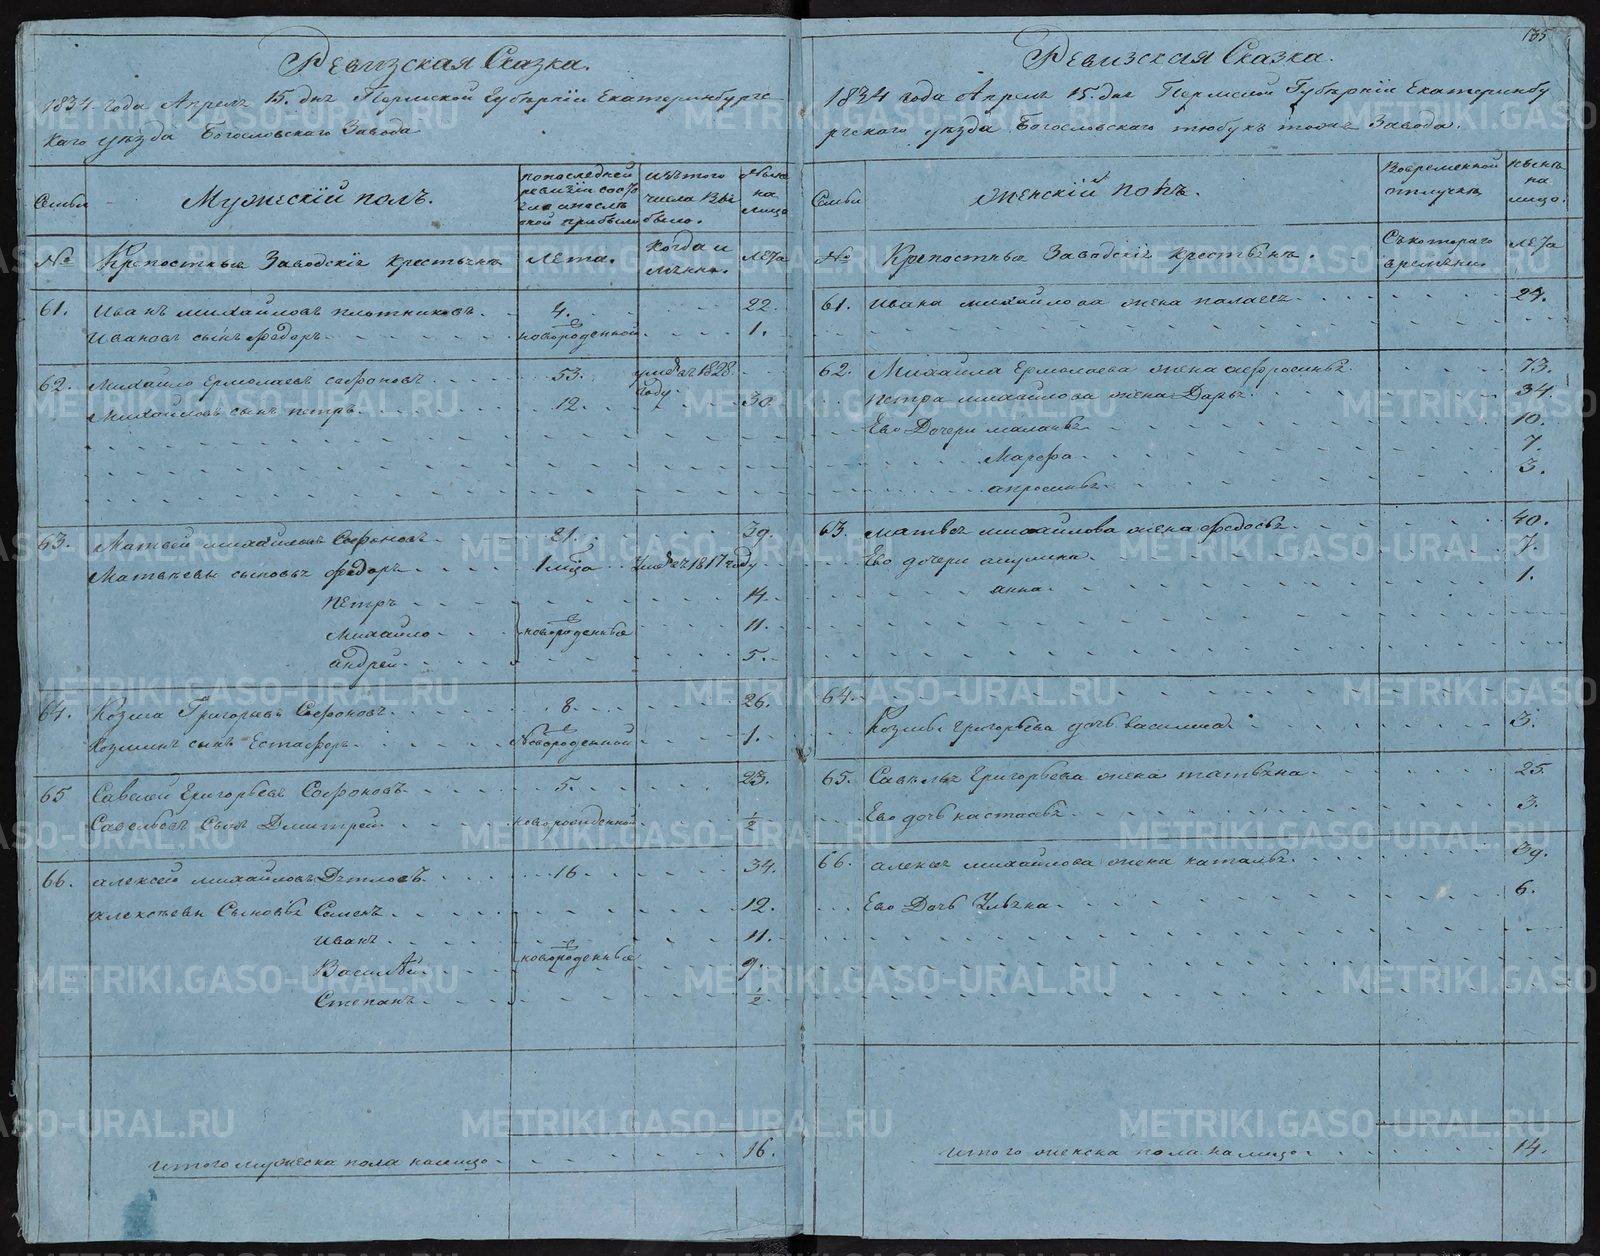 135
Ревизская Сказка.
1834 года Апреля 15. дня Пермской Губернiи Екатеринбургс
каго уезда Богословскаго Завода
Семьи
Мужескiй полъ.
по последней
ревизiи состо
яло и после
оной прибыло
изъ того
числа вы
было.
Ныне
на
лицо
№
Крепостные Заводскiе крестьяне
Лета.
Когда и
Лета
61. Иванъ михайловъ плотниковъ. 4. 22.
Ивановъ сынъ Федоръ новорожденной 1.
62. Михайло Ермолаевъ сафоновъ 53. 1828 году
Михайловъ сынъ петръ 12. 30
63. Матвей михайловъ Сафоновъ 21. 39.
Матвеевы сыновья федоръ 1 м̃ца 1817 году
петръ 14
Михайло новорожденные 11.
андрей 5.
64. Козма Григорьевъ Сафоновъ 8 26.
Козминъ сынъ Естафоръ Новорожденной 1.
65 Савелей Григорьевъ Сафоновъ 5. 23.
Савельевъ Сынъ Дмитрей новорожденной ½
66. алексей михайловъ Дятловъ 16 34.
алексеевы Сыновья Семенъ 12.
иванъ 11.
Василей новорожденные 9.
Степанъ ½
итого мужеска пола налицо 16.
Ревизская Сказка.
1834 года Апреля 15. дня Пермской Губернiи Екатеринбу
ргского уезда Богословскаго тюбукъ тожъ Завода.
Семьи
женскiй полъ.
Во временной
отлучке
ныне
на
лицо.
№
Крепостные Заводскiе крестьяне.
Съ котораго
времени.
Лета
61. Ивана михайлова жена палагея 24.
62. Михайла Ермолаева жена афросинья 73.
петра михайлова жена Дарья 34
Ево Дочери маланья 10.
Марфа 7.
апросинья 3.
63. матвея михайлова жена федосья 40.
Ево дочери акулина 7.
анна 1.
64.
Козмы Григорьева дочь василиса 3.
65. Савелья Григорьева жена татьяна 25.
Ево дочь настасья 3.
66. алексея михайлова жена наталья 39.
Ево Дочь Ульяна 6.
итого женска пола налицо 14.
METRIKI.GASO-URAL.RU